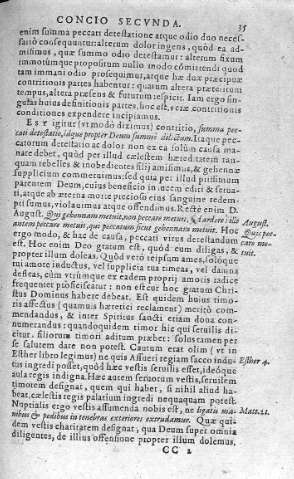 CONCIO SECVNDA. 35
enim summa peccati detestatione atque odio duo neces-
sariò consequuntur: alterum dolor ingens, quòd ea ad-
misimus, quæ summo odio detestamur: alterum fixum
immotumque propositum nullo modo committendi quod
tam immani odio prosequimur, atque hæ duæ præcipuæ
contritionis partes habentur: quarum altera præteritum
tempus, altera præsens & futurum respicit. Iam ergo sin-
gulas huius definitionis partes, hoc est, veræ contritionis
conditiones expendere incipiamus.
Est igitur (vt modò diximus) contritio, summa pec-
cati detestatio, idque propter Deum summè dilectum. Itaque pec-
catorum detestatio ac dolor non ex ea solùm causa ma-
nare debet, quòd per illud cælestem hæreditatem tan-
quam rebelles & inobedientes filij amisimus, & gehennæ
supplicium commeruimus: sed quia per illud pijssimum
parentem Deum, cuius beneficio in rerum
ti, atque ab æterna morte precioso eius sanguine redem-
pti sumus, violauimus atque offendimus. Rectè enim D.
August. Qui gehennam metuit, non peccare metuit, sed ardere: ille
autem peccare metuit, qui peccatum sicut gehennam metuit. Hoc
August.
ergo modo, & hac de causa, peccati virus detestandum
est. Hoc enim Deo gratum est, quòd eum diligas, &
propter illum doleas. Quòd verò teipsum ames, solóque
tui amore inductus, vel supplicia tua timeas, vel damna
defleas, cùm vtrumque ex eadem proprij amoris radice
frequenter proficiscatur: non est cur hoc gratum Chri-
stus Dominus habere debeat. Est quidem huius timo-
ris affectus (quamuis hæretici reclament) meritò com-
mendandus, & inter Spiritus sancti etiam dona con-
numerandus: quandoquidem timor hic qui seruilis di-
citur, filiorum timori aditum præbet: solus tamen per
se salutem dare non potest. Cautum etat olim (vt in
Esther libro legimus) ne quis Assueri regiam sacco indu-
Esther 4.
tus ingredi posset, quòd hæc vestis seruilis esset, ideóque
aula regis indigna. Hæc autem seruorum vestis, seruilem
timorem designat, quem qui habet, si nihil aliud ha-
beat, cælestis regis palatium ingredi nequaquam potest.
Nuptialis ergo vestis assumenda nobis est, ne ligatis ma-
Matt.22.
nibus & pedibus in tenebras exteriores extrudamur. Quæ qui-
dem vestis charitatem designat, qua Deum super omnia
diligentes, de illius offensione propter illum dolemus.
CC 2